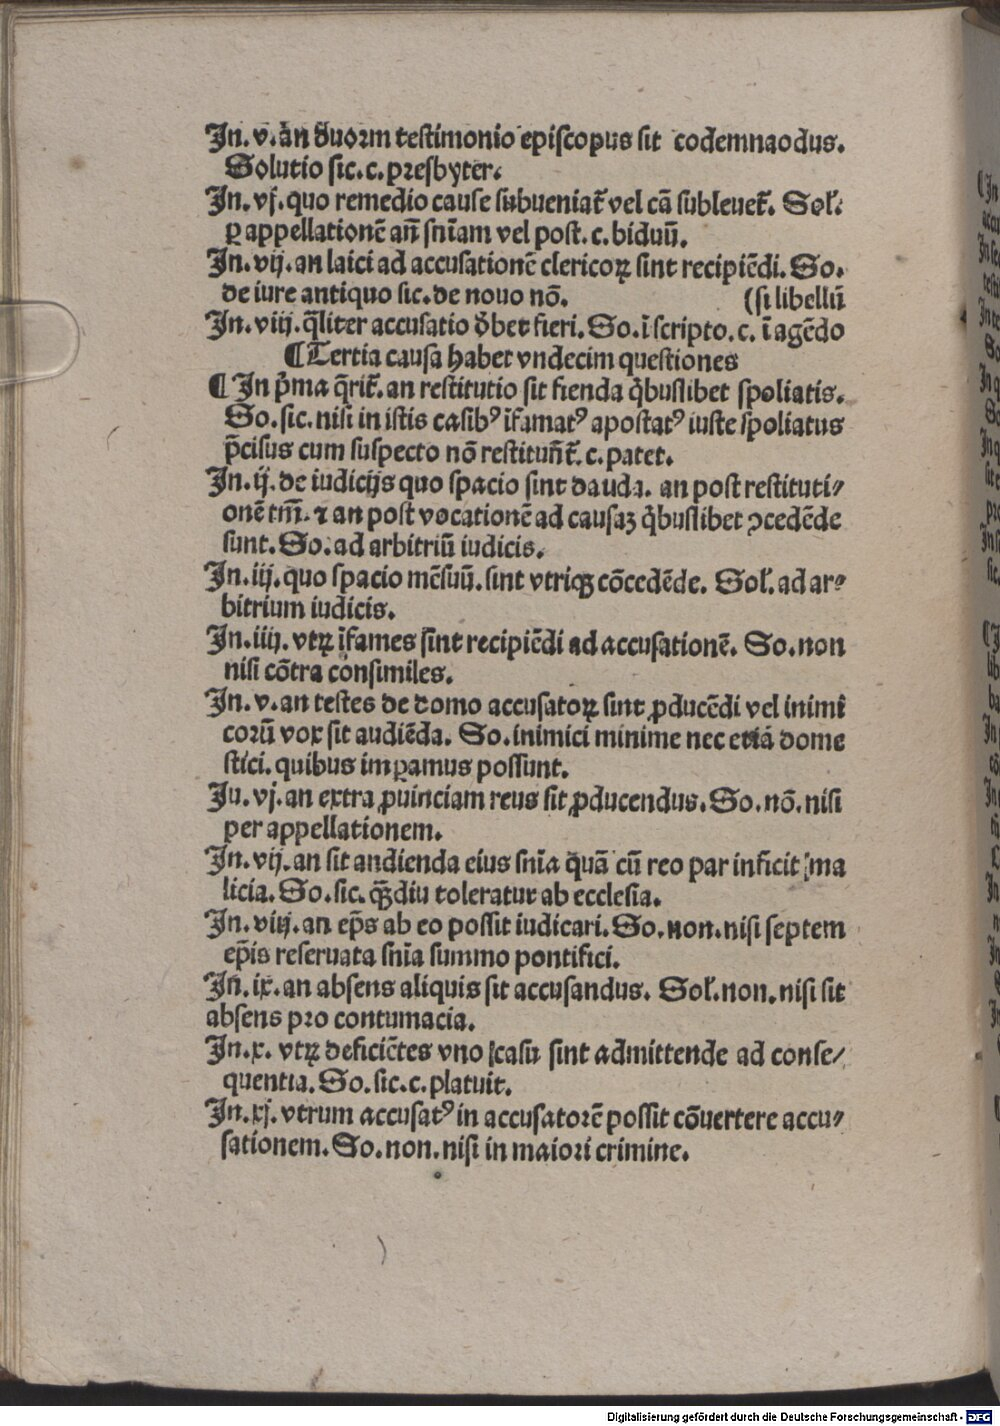 Jn. v. an duorm testimonio episcopus sit codemnaodus.
Solutio sic. c. presbyter.
Jn. vj. quo remedio cause subueniat᷑ vel cā subleuet᷑. Sol̕.
ꝑ appellationē añ sn̄iam vel post. c. biduū.
Jn. vij. an laici ad accusationē clericoꝝ sint recipiēdi. So.
de iure antiquo sic. de nouo nō. (si libellū
Jn. viij. q̄liter accusatio d̕bet fieri. So. ī scripto. c. ī agēdo
¶ Tertia causa habet vndecim questiones
¶ Jn p̄ma q̄rit᷑. an restitutio sit fienda q̇buslibet spoliatis.
So. sic. nisi in istis casibꝰ īfamatꝰ apostatꝰ iuste spoliatus
p̄cisus cum suspecto nō restituūt᷑. c. patet.
Jn. ij. de iudicijs quo spacio sint dauda. an post restituti⸗
onē tm̄. ⁊ an post vocationē ad causaꝫ q̇buslibet ꝯcedēde
sunt. So. ad arbitriū iudicis.
Jn. iij. quo spacio mēsuū. sint vtriqꝫ cōcedēde. Sol̕. ad ar⸗
bitrium iudicis.
Jn. iiij. vtꝝ īfames sint recipiēdi ad accusationē. So. non
nisi cōtra consimiles.
Jn. v. an testes de domo accusatoꝝ sint ꝓducēdi vel inimi
corū vox sit audiēda. So. inimici minime nec etiā dome
stici. quibus imꝑamus possunt.
Ju. vj. an extra ꝓuinciam reus sit ꝓducendus. So. nō. nisi
per appellationem.
Jn. vij. an sit andienda eius sn̄ia quā cū reo par inficit ma
licia. So. sic. qꝫdiu toleratur ab ecclesia.
Jn. viij. an ep̄s ab eo possit iudicari. So. non. nisi septem
ep̄is reseruata sn̄ia summo pontifici.
Jn. ix. an absens aliquis sit accusandus. Sol̕. non. nisi sit
absens pro contumacia.
Jn. x. vtꝝ deficiētes vno casu sint admittende ad conse⸗
quentia. So. sic. c. platuit.
Jn. xj. vtrum accusatꝰ in accusatorē possit cōuertere accu⸗
sationem. So. non. nisi in maiori crimine.
Digitalisierung gefördert durch die Deutsche Forschungsgemeinschaft - DFG